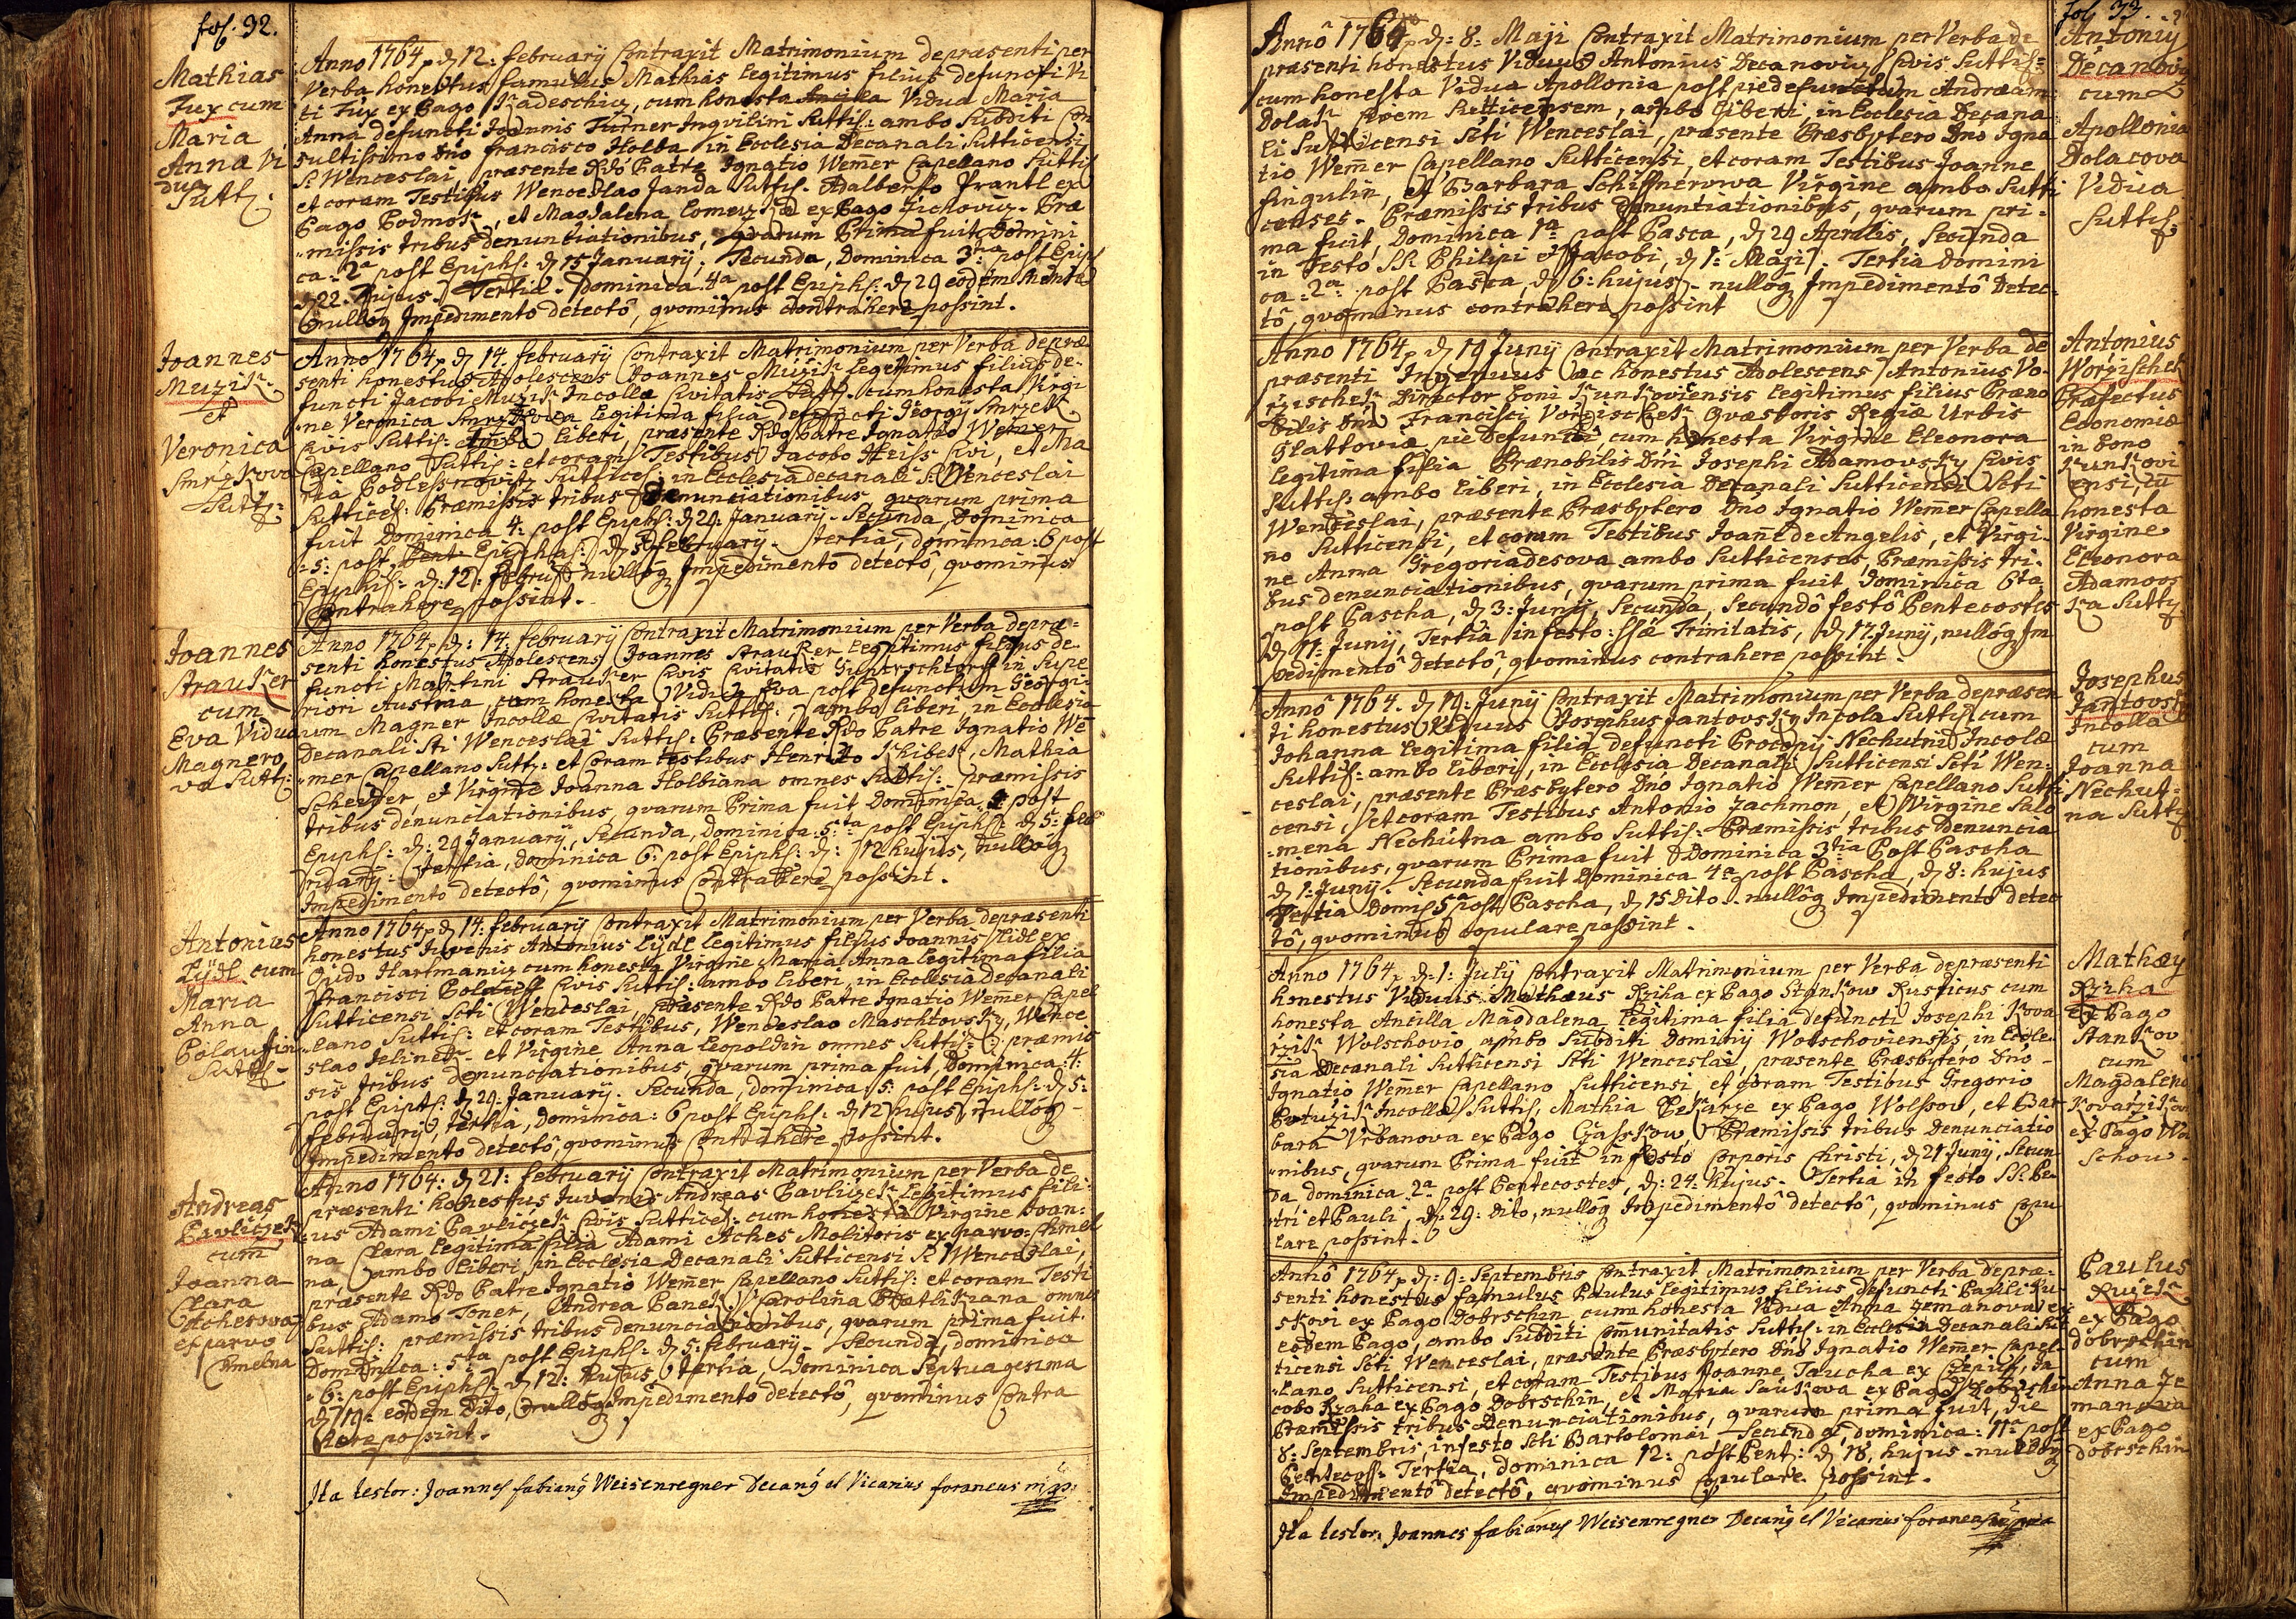 fol. 92.
Mathias
Fux cum
Maria
Anna Vi
dua
Sutt:
Anno 1764 d 12: februarij Contraxit Matrimonium de præsenti per
Verba honestus famulus Mathias legitimus filius defuncti Vi
ti Fux ex Pago cum honesta Vidua Maria
Anna defuncti Joannis Turner Inqvilini Suttis: ambo Subditi Con
sultissimo Dno francisco Holba in Ecclesia Decanali Sutticensi
S: Wenceslai, præsente Rdo Patre Ignatio Wemer Capellano Suttis
et coram Testibus Wenceslao Janda Suttis. Adalberto Frantl ex
Pago Podmok, et Magdalena ex Pago Jichoviz. Præ
missis tribus denunciationibus, qvarum Prima fuit Domini
ca: 2a post Epiph: d 15 Januarij, Secunda, Dominica 3tia post Epiph
d 22. hujus. Tertia. Dominica 4a post Epiph: d 29 eodem
nullog Impedimento detectô, qvominus contrahere possint.
Joannes
Muzik
et
Veronica
Smrzkova
Sutt:
Anno 1764 d 14. februarij Contraxit Matrimonium per Verba depræ
senti honestus Adolescens Joannes Muzik legitimus filius de-
functi Jacobi Muzik Incollæ Civitatis Sutt. cum honesta Virgi
ne Veronica legitima filia defuncti Georgij Smrzek
Civis Suttis: Ambo liberi, præsente Rdo Patre Ignatio Wemer
Capellano Suttis: et coram Testibus Jacobo Heiss Civi, et Ma
ria Suttices: in Ecclesia decanali S: Wenceslai
Suttices: Præmissis tribus Denunciationibus qvarum prima
fuit Dominica 4: post Epiph: d 29: Januarij. Secunda, Dominica
5: post Epiph: d 5 februarij. tertia, dominica: 6 post
Epiph: d: 12: Febru: nullog Impedimento detectô, qvominus
Contrahere possint.
Joannes
Strauker
cum
Eva Vidua
Magnero
va Sutt:
Anno 1764 d: 14: februarij Contraxit Matrimonium per Verba depræ=
senti honestus Adolescens Joannes Strauker legitimus filius de
functi Martini Strauker Civis Civitatis in Supe
riori Austria, cum honesta Vidua Eva post defunctum Georgi
um Magner Incollæ Civitatis Suttis:, ambo liberi in Ecclesia
Decanali Sti Wenceslai Suttis: Præsente Rdo Patre Ignatio We
mer Capellano Sutt: et Coram testibus Henrico Mathia
Scheider, et Virgine Joanna Holbiana omnes Suttis: præmissis
tribus denunciationibus, qvarum Prima fuit Dominica 4 post
Epiph: d: 29 Januarij, Secunda, dominica: 5:ta post Epiph: d 5: feb
ruarij. tertia, dominica 6: post Epiph: d: 12 hujus, nullog
Impedimento detectô, qvominus Contrahere possint.
Antonius
Lijdl cum
Maria
Anna
Sutt:
Anno 1764 d 14: februarij Contraxit Matrimonium per Verba depræsenti
honestus Juvenis Antonius Lijdl legitimus filius Joannis Lidl ex
Oppido Hartmaniz cum honesta Virgine Maria Anna legitima filia
Francisci Civis Suttis: ambo liberi, in Ecclesia decanali
Sutticensi Scti Wenceslai, præsente Rdo Patre Ignatio Wemer Capel
lano Suttis: et coram Testibus, Wenceslao Maschtovsky, Wence
slao Jelinek et Virgine Anna Leopoldin omnes Suttis: præmis
sis tribus denunciationibus, qvarum prima fuit, Dominica: 4:
post Epiph: d 29: Januarij. Secunda, dominica: 5: post Epiph: d 5:
februarij, tertia, dominica: 6 post Epiph: d 12 hujus nullog
Impedimento detectô, qvominus Contrahere possint.
Andreas
Pavliczek
cum
Joanna
Clara
Atcherova
ex parvo
Chmelna
Anno 1764: d 21: februarij Contraxit Matrimonium per Verba de
præsenti honestus Juvenis Andreas Pavliczek legitimus fili
us Adami Pavliczek Civis Suttices: cum honesta Virgine Joan:
na Clara legitima filia Adami Atches Molitoris ex parvo: Chmel
na, ambo liberi, in Ecclesia Decanali Sutticensi S: Wenceslai,
præsente Rdo Patre Ignatio Wemer Capellano Suttis: et coram Testi
bus Adamo Toner, Andrea Panek, Carolina omnes
Suttis: præmissis tribus denunciationibus, qvarum prima fuit.
Dominica: 5ta post Epiph: d 5: february. Secunda, dominica
6: post Epiph: d 12: hujus, tertia, dominica Septuagesima
d 19: eodem Dito, nullog Impedimento detectô, qvominus Contra
here possint.
Ita testor: Joannes fabiang Weisenregner Decang et Vicarius foraneus mpp.
fol 93.
Anno 1764 d: 8: Maji Contraxit Matrimonium per Verba de
præsenti honestus Viduus Antonius Decanoviz Civis Suttis=
cum honesta Vidua Apollonia post pie defunctum Andream
Dolak Civem Sutticensem, ambo liberi, in Ecclesia Decana
li Sutticensi Scti Wenceslai, præsente Præsbytero Dno Igna
tio Wemer Capellano Sutticensi, et coram Testibus Joanne
fingulin, et Barbara Schiffnerowa Virgine ambo Sutti
censes. Præmissis tribus Denuntiationibus, qvarum pri-
ma fuit, Dominica 1a post Pasca, d 29 Aprilis, Secunda
in Festo SS: Philipi et Jacobi, d 1: Maji. Tertia Domini
ca: 2a: post Pasca, d 6: hujus. nullog Impedimentô Detec-
tô, qvominus contrahere possint
Antonij
Decanoviz
cum
Apollonia
Dolacova
Vidua
Suttis
Anno 1764 d 19 Junij Contraxit Matrimonium per Verba de
præsenti Ingenuus ac honestus Adolescens Antonius Vo-
rzischek Director boni Kunkoviensis legitimus filius Præno
bilis Dni Francisci Vorzischek Qvæstoris Regiæ Urbis
Glattoviæ pie Defuncti, cum honesta Virgine Eleonora
legitima filia Prænobilis Dni Josephi Adamovsky Civis
Suttis: ambo liberi, in Ecclesia Decanali Sutticensi Scti
Wenceslai, præsente Præsbytero Dno Ignatio Wemer Capella
no Sutticensi, et coram Testibus Joane de Angelis, et Virgi-
ne Anna Gregoriadesova ambo Sutticenses, Præmissis tri-
bus denunciationibus, qvarum prima fuit Dominica 6ta
post Pascha, d 3: Junij, Secunda, Secundô festô Pentecostes
d 11: Junij, Tertia in festo: SSæ Trinitatis, d 17. Junij, nullog Im
pedimentô Detectô, qvominus contrahere possint.
Antonius
Worzischek
Præfectus
Economiæ
in bono
Kunkovi
ensi, cu
honesta
Virgine
Eleonora
Adamovs
ka Sutt
Anno 1764. d 19: Junij Contraxit Matrimonium per Verba depræsen
ti honestus Viduus Josephus Jantovsky Incola Suttis cum
Johanna legitima filia defuncti Procopij Nechutni Incolæ
Suttis: ambo liberi, in Ecclesia Decanali Sutticensi Scti Wen:
ceslai, præsente Præsbytero Dno Ignatio Wemer Capellano Sutti
censi, et coram Testibus Antonio Jachmon, et Virgine Salo
mena Nechutna ambo Suttis: Præmissis tribus Denuncia
tionibus, qvarum Prima fuit Dominica 3tia Post Pascha
d 1: Junij. Secunda fuit Dominica 4a post Pascha, d 8: hujus
Tertia Domi: 5 post Pascha, d 15 Dito. nullog Impedimentô detec
tô, qvominus copulare possint.
Josephus
Jantovsky
Incolla
cum
Joanna
Nechut-
na Sutt
Anno 1764 d: 1: Julij Contraxit Matrimonium per Verba depræsenti
honestus Viduus Mathæus Rziha ex Pago Stankow Rusticus cum
honesta Ancilla Magdalena legitima filia defuncti Josephi Kova
rzik Wolschovio, ambo Subditi Dominij Wolschoviensis, in Eccle-
sia Decanali Sutticensi Scti Wenceslai, præsente Præsbytero Dno
Ignatio Wemer Capellano Sutticensi, et coram Testibus Gregorio
Incollæ Suttis, Mathia Pekarze ex Pago Wolssov, et Bar
bara Vrbanova ex Pago Czasskow, Præmissis tribus Denunciatio
nibus, qvarum Prima fuit in festo Corporis Christi, d 21 Junij, Secun
da dominica 2a post Pentecostes, d: 24: hujus. Tertia in festo SS: Pe-
tri et Pauli, d: 29: dito, nullog Impedimentô detectô, qvominus Copu
lare possint.
Mathæy
Rziha
ex Pago
Stankov
cum
Magdalena
Kovarzikov
ex Pago Wo
schow.
Anno 1764 d: 9: Septembris Contraxit Matrimonium per Verba depræ-
senti honestus famulus Paulus legitimus filius defuncti Pauli Ru-
ex Pago Dobrschin, cum honesta Vidua Anna Zemanova ex
eodem Pago, ambo Subditi Comunitatis Suttis: in Ecclesia Decanali Sut
ticensi Scti Wenceslai, præsente Præsbytero Dno Ignatio Wemer Capel-
lano Sutticensi, et coram Testibus Joanne Taucha ex Czepiz, Ja
cobo Rzaha ex Pago Dobrschin, et Maria ex Pago Dobrschin
Præmissis tribus Denunciationibus, qvarum prima fuit, die
8: Septembris, in festo Scti Bartolomæi Secunda, dominica: 11a post
Pentecost: Tertia, dominica 12: post Pent: d 18, hujus. nullog
Impedimentô detectô, qvominus Copulare possint.
Paulus
ex Pago
dobrschin
cum
Anna Ze
manova
ex Pago
dobrschin
Ita testor: Joannes fabianus Weisenregner Decang et Vicarius foraneus